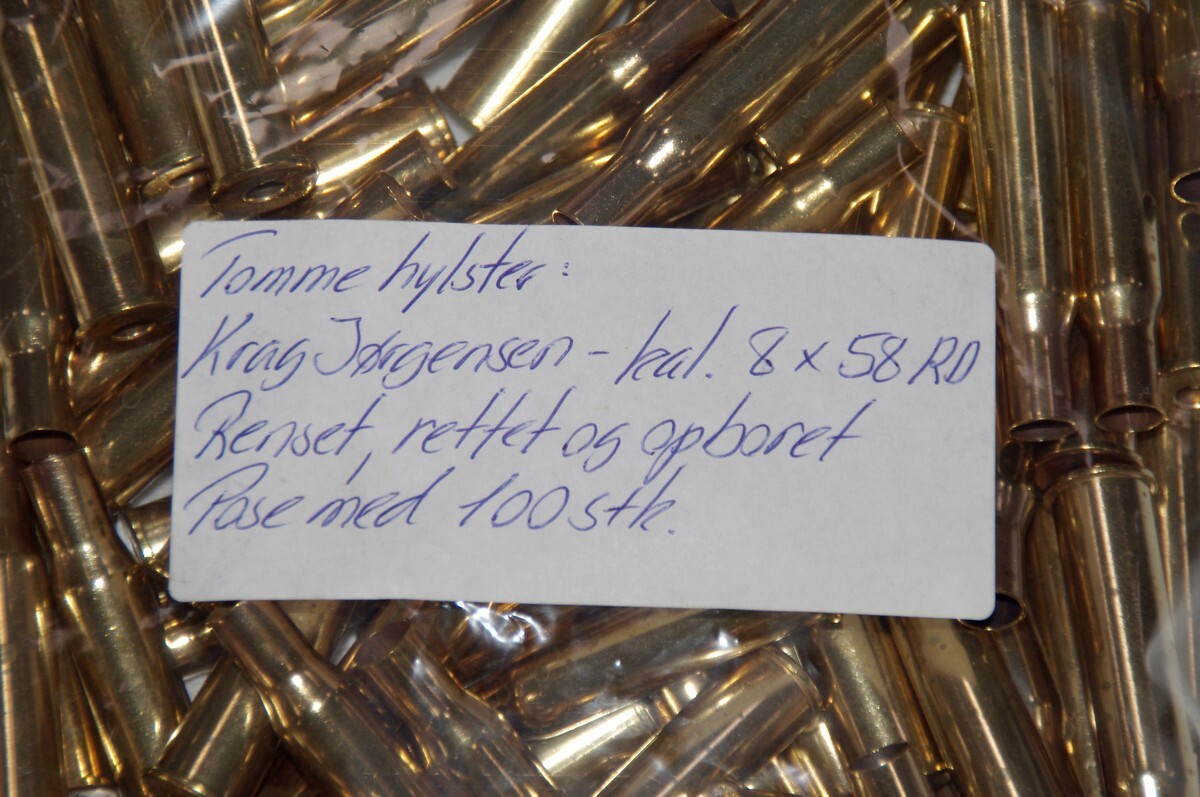 Tomme hylster:
Krag Jørgensen - kal. 8 x 58 RD
Renset, rettet og opboret
Pose med 100 stk.